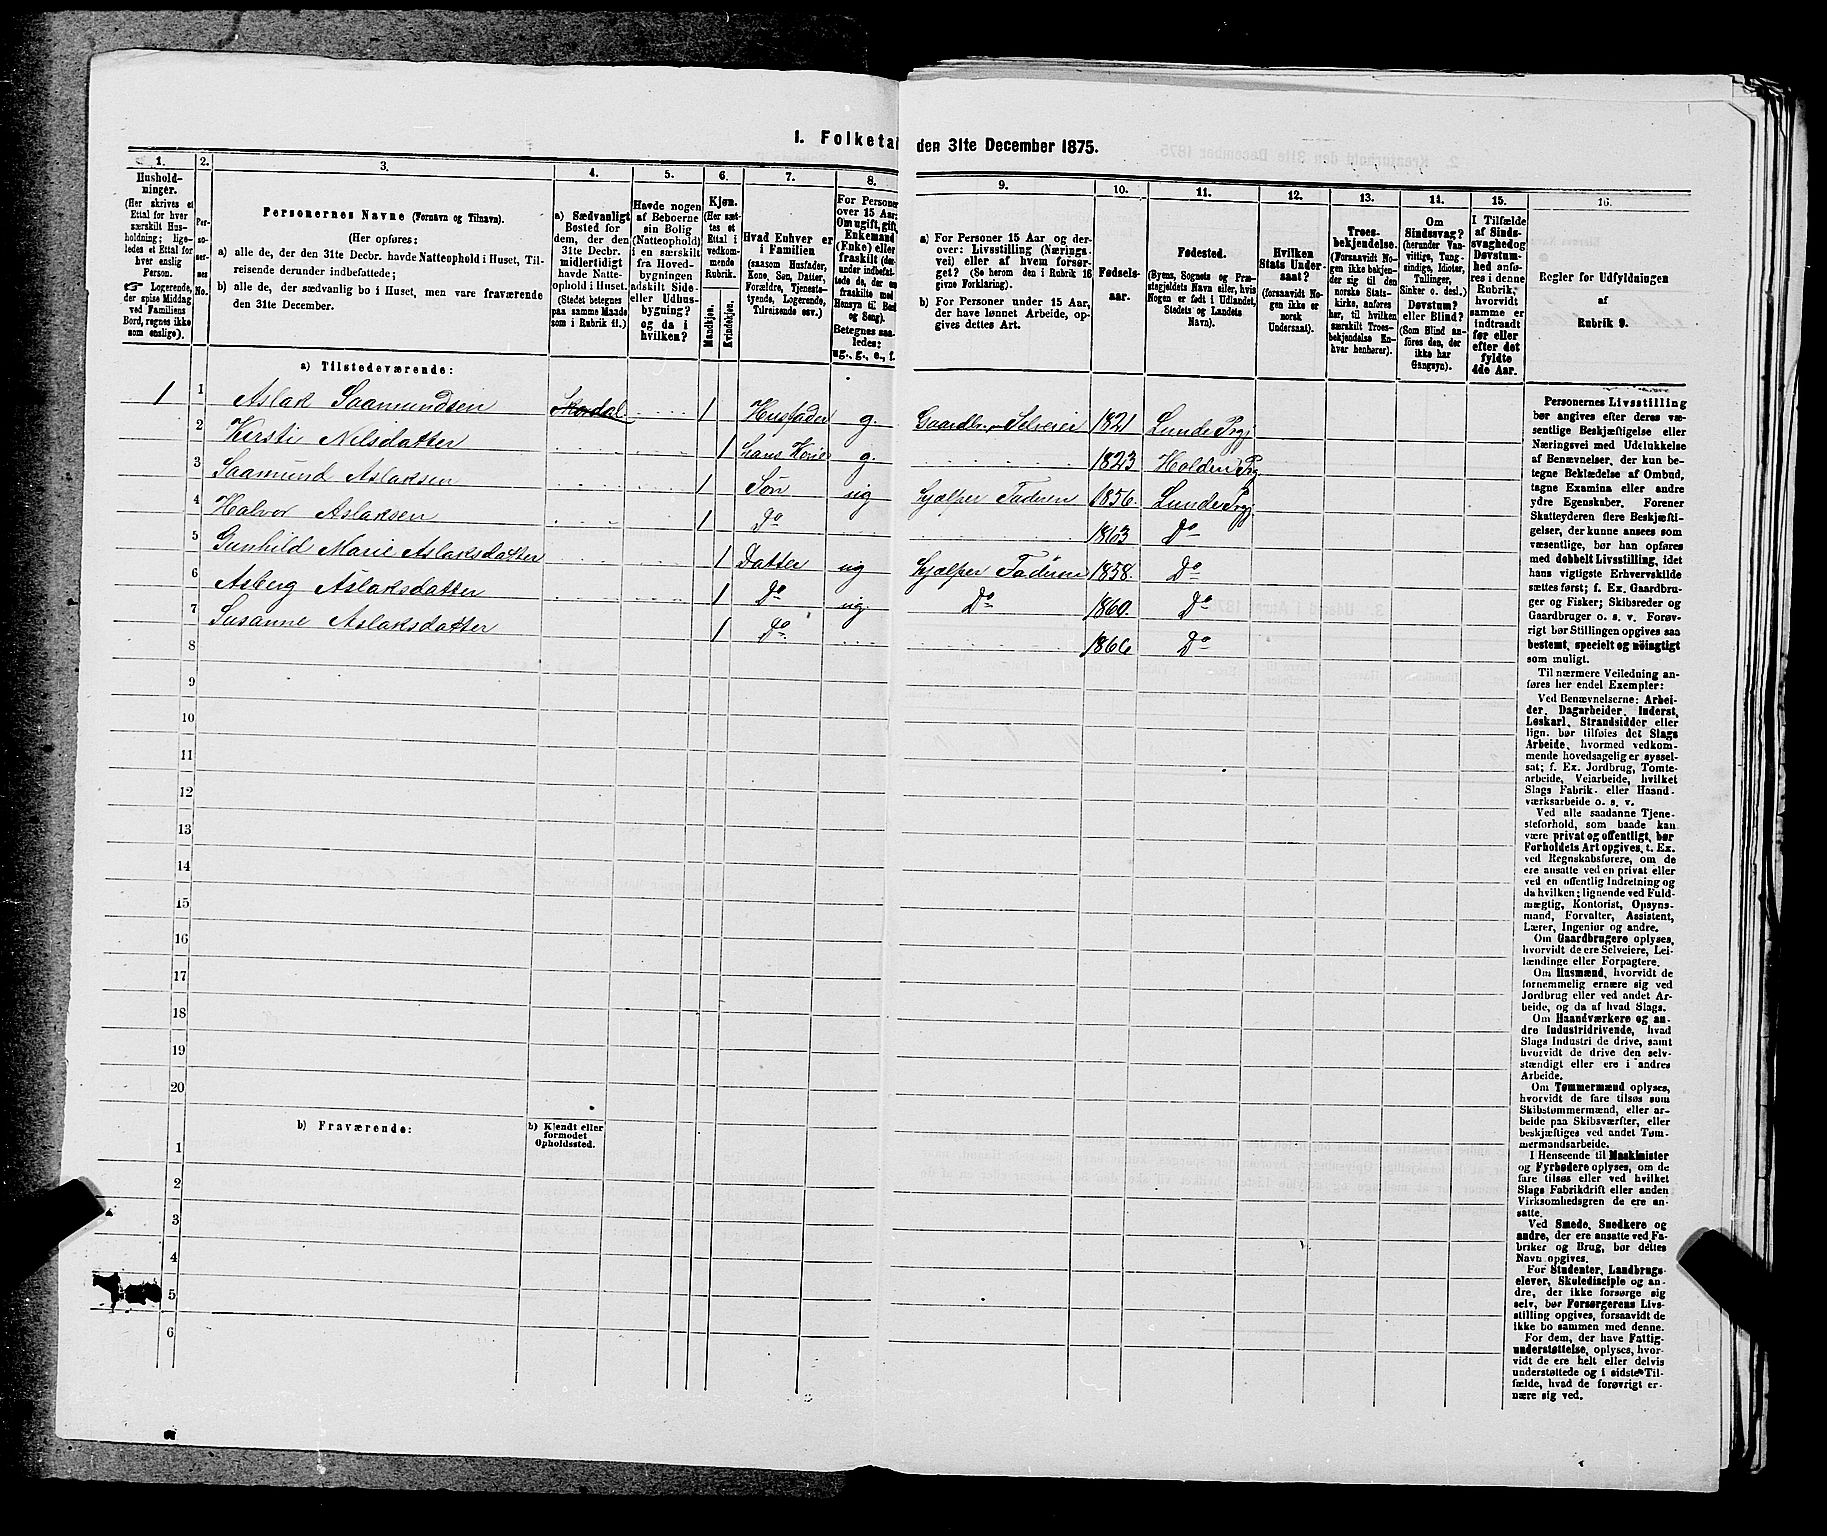 1. Folketal den 31te December 1875.
1. 2. 3. 4. 5. 6. 7. 8. 9. 10. 11. 12. 13. 14. 15. 16.
Hushold-
ninger.
(Her skrives et
Ettal for hver
særskilt Hus-
holdning; lige-
ledes et Ettal for
hver enslig
Person.
☞ Logerende,
der spise Middag
ved Familiens
Bord, regnes ikke
som enslige).
Per-
so-
ner-
nes
No.
Personernes Navne (Fornavn og Tilnavn).
(Her opføres:
a) alle de, der den 31te Decbr. havde Natteophold i Huset, Til-
reisende derunder indbefattede;
b) alle de, der sædvanlig bo i Huset, men vare fraværende
den 31te December.
a) Sædvanligt
Bosted for
dem, der den
31te Decbr.
midlertidigt
havde Natte-
ophold i Huset.
(Stedet betegnes
paa samme Maade
som i Rubrik 11.)
Havde nogen
af Beboerne
sin Bolig
(Natteophold)
i en særskilt
fra Hoved-
bygningen
adskilt Side-
eller Udhus-
bygning?
og da i
hvilken?
Kjøn.
(Her sæt-
tes et
Ettal i
vedkom-
mende
Rubrik.
Mandkjøn.
Kvindekjøn.
Hvad Enhver er
i Familien
(saasom Husfader,
Kone, Søn, Datter,
Forældre, Tjeneste-
tyende, Logerende,
Tilreisende osv.)
For Personer
over 15 Aar:
Om ugift, gift,
Enkemand
(Enke) eller
fraskilt (der-
under indbefat-
tede de, der ere
fraskilte med
Hensyn til Bord
og Seng).
Betegnes saa-
ledes:
ug., g., e., f.
a) For Personer 15 Aar og der-
over: Livsstilling (Nærings-
vei) eller af hvem forsør-
get? (Se herom den i Rubrik 16
givne Forklaring).
b) For Personer under 15 Aar,
der have lønnet Arbeide, op-
gives dettes Art.
Fødsels-
aar.
Fødested.
(Byens, Sognets og Præ-
stegjeldets Navn eller, hvis
Nogen er født i Udlandet,
Stedets og Landets
Navn).
Hvilken
Stats Under-
saat?
(forsaavidt No-
gen ikke er
norsk
Undersaat).
Troes-
bekjendelse.
(Forsaavidt No-
gen ikke bekjen-
der sig til den
norske Stats-
kirke, anføres
her, til hvilken
særskilt Troes-
bekjendelse En-
hver henhører).
Om
Sindssvag?
(herunder Van-
vittige, Tung-
sindige, Idioter,
Tullinger,
Sinker o. desl.)
Døvstum?
eller Blind?
(Som Blind an-
føres den, der
ikke har
Gangsyn).
I Tilfælde
af Sinds-
svaghed og
Døvstum-
hed anfø-
res i denne
Rubrik,
hvorvidt
samme er
indtraadt
før eller
efter det
fyldte
4de Aar.
Regler for Udfyldningen
af
Rubrik 9.
a) Tilstedeværende:
1 1 Aslak Saamundsen Skordal 1 Husfader g. Gaardbr. Selveier 1821 Lunde Prgj
2 Kirsti Nilsdatter 1 Hans Kone g. 1823 Holden Prg.
3 Saamund Aslaksen 1 Søn ug Hjælper Faderen 1856. Lunde Prgj
4 Halvor Aslaksen 1 Do 1863 Do
5 Gunhild Marie Aslaksdatter 1 Datter ug Hjælper Faderen 1858. Do
6 Asberg Aslaksdatter 1 Do ug Do 1860. Do
7 Susanne Aslaksdatter 1 Do 1866 Do
8
9
10
11
12
13
14
15
16
17
18
19
20
b) Fraværende:
b) Kjendt eller
formodet
Opholdssted.
1
2
3
4
5
6
Personernes Livsstilling
bør angives efter deres væ-
sentlige Beskjæftigelse eller
Næringsvei med Udelukkelse
af Benævnelser, der kun be-
tegne Beklædelse af Ombud,
tagne Examina eller andre
ydre Egenskaber. Forener
Skatteyderen flere Beskjæfti-
gelser, der kunne ansees som
væsentlige, bør han opføres
med dobbelt Livsstilling, idet
hans vigtigste Erhvervskilde
sættes først; f. Ex. Gaardbru-
ger og Fisker; Skibsreder og
Gaardbruger o. s. v. Forøv-
rigt bør Stillingen opgives saa
bestemt, specielt og nöiagtigt
som muligt.
Til nærmere Veiledning an-
føres her endel Exempler:
Ved Benævnelserne: Arbei-
der, Dagarbeider, Inderst,
Løskarl, Strandsidder eller
lign. bør tilføies det Slags
Arbeide, hvormed vedkom-
mende hovedsagelig er syssel-
sat; f. Ex. Jordbrug, Tomte-
arbeide, Veiarbeide, hvilket
Slags Fabrik- eller Haand-
værksarbeide o. s. v.
Ved alle saadanne Tjene-
steforhold, som baade kan
være privat og offentligt, bør
Forholdets Art opgives, t. Ex.
ved Regnskabsførere, om de
ere ansatte ved en privat eller
ved en offentlig Indretning og
da hvilken; lignende ved Fuld-
mægtig, Kontorist, Opsyns-
mand, Forvalter, Assistent,
Lærer, Ingeniør og andre.
Om Gaardbrugere oplyses,
hvorvidt de ere Selveiere, Lei-
lændinge eller Forpagtere.
Om Husmænd, hvorvidt de
fornemmelig ernære sig ved
Jordbrug eller ved andet Ar-
beide, og da af hvad Slags.
Om Haandværkere og an-
dre Industridrivende, hvad
Slags Industri de drive, samt
hvorvidt de drive den selv-
stændigt eller ere i andres
Arbeide.
Om Tømmermænd oplyses,
hvorvidt de fare tilsøs som
Skibstømmermænd, eller ar-
beide paa Skibsværfter, eller
beskjæftiges ved andet Tøm-
mermandsarbeide.
I Henseende til Maskinister
og Fyrbødere oplyses, om de
fare tilsøs eller ved hvilket
Slags Fabrikdrift eller anden
Virksomhedsgren de ere an-
satte.
Ved Smede, Snedkere og
andre, der ere ansatte ved Fa-
briker og Brug, bør dettes
Navn opgives.
For Studenter, Landbrugs-
elever, Skoledisciple og an-
dre, der ikke forsørge sig
selv, bør Forsørgerens Livs-
stilling opgives, forsaavidt de
ikke bo sammen med denne.
For dem, der have Fattig-
understøttelse, oplyses, hvor-
vidt de ere helt eller delvis
understøttede og i sidste Til-
fælde, hvad de forøvrigt er-
nære sig ved.